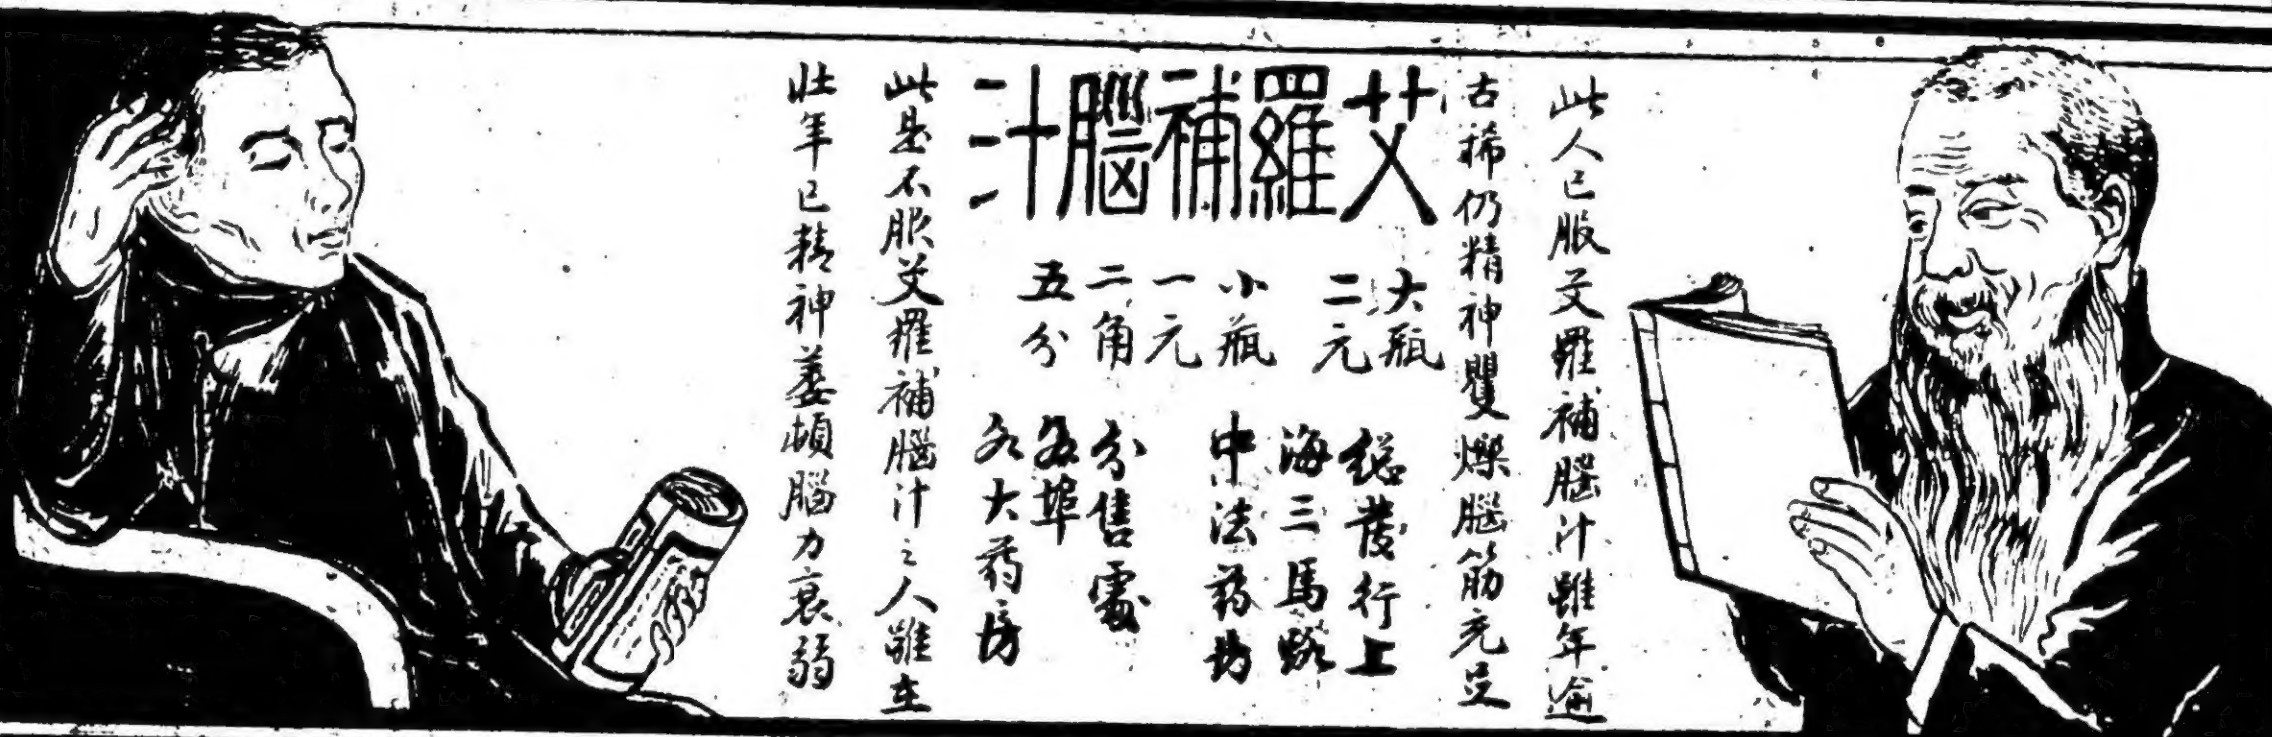 此人已服艾羅補腦汁雖年逾
古稀仍精神矍爍腦筋充足
艾羅補腦汁
大瓶
二元
小瓶
一元
二角
五分
總發行上
海三馬路
中法药房
分售處
各埠
各大药房
此是不服艾羅補腦汁之人雖在
壯年已精神萎頓腦力衰弱